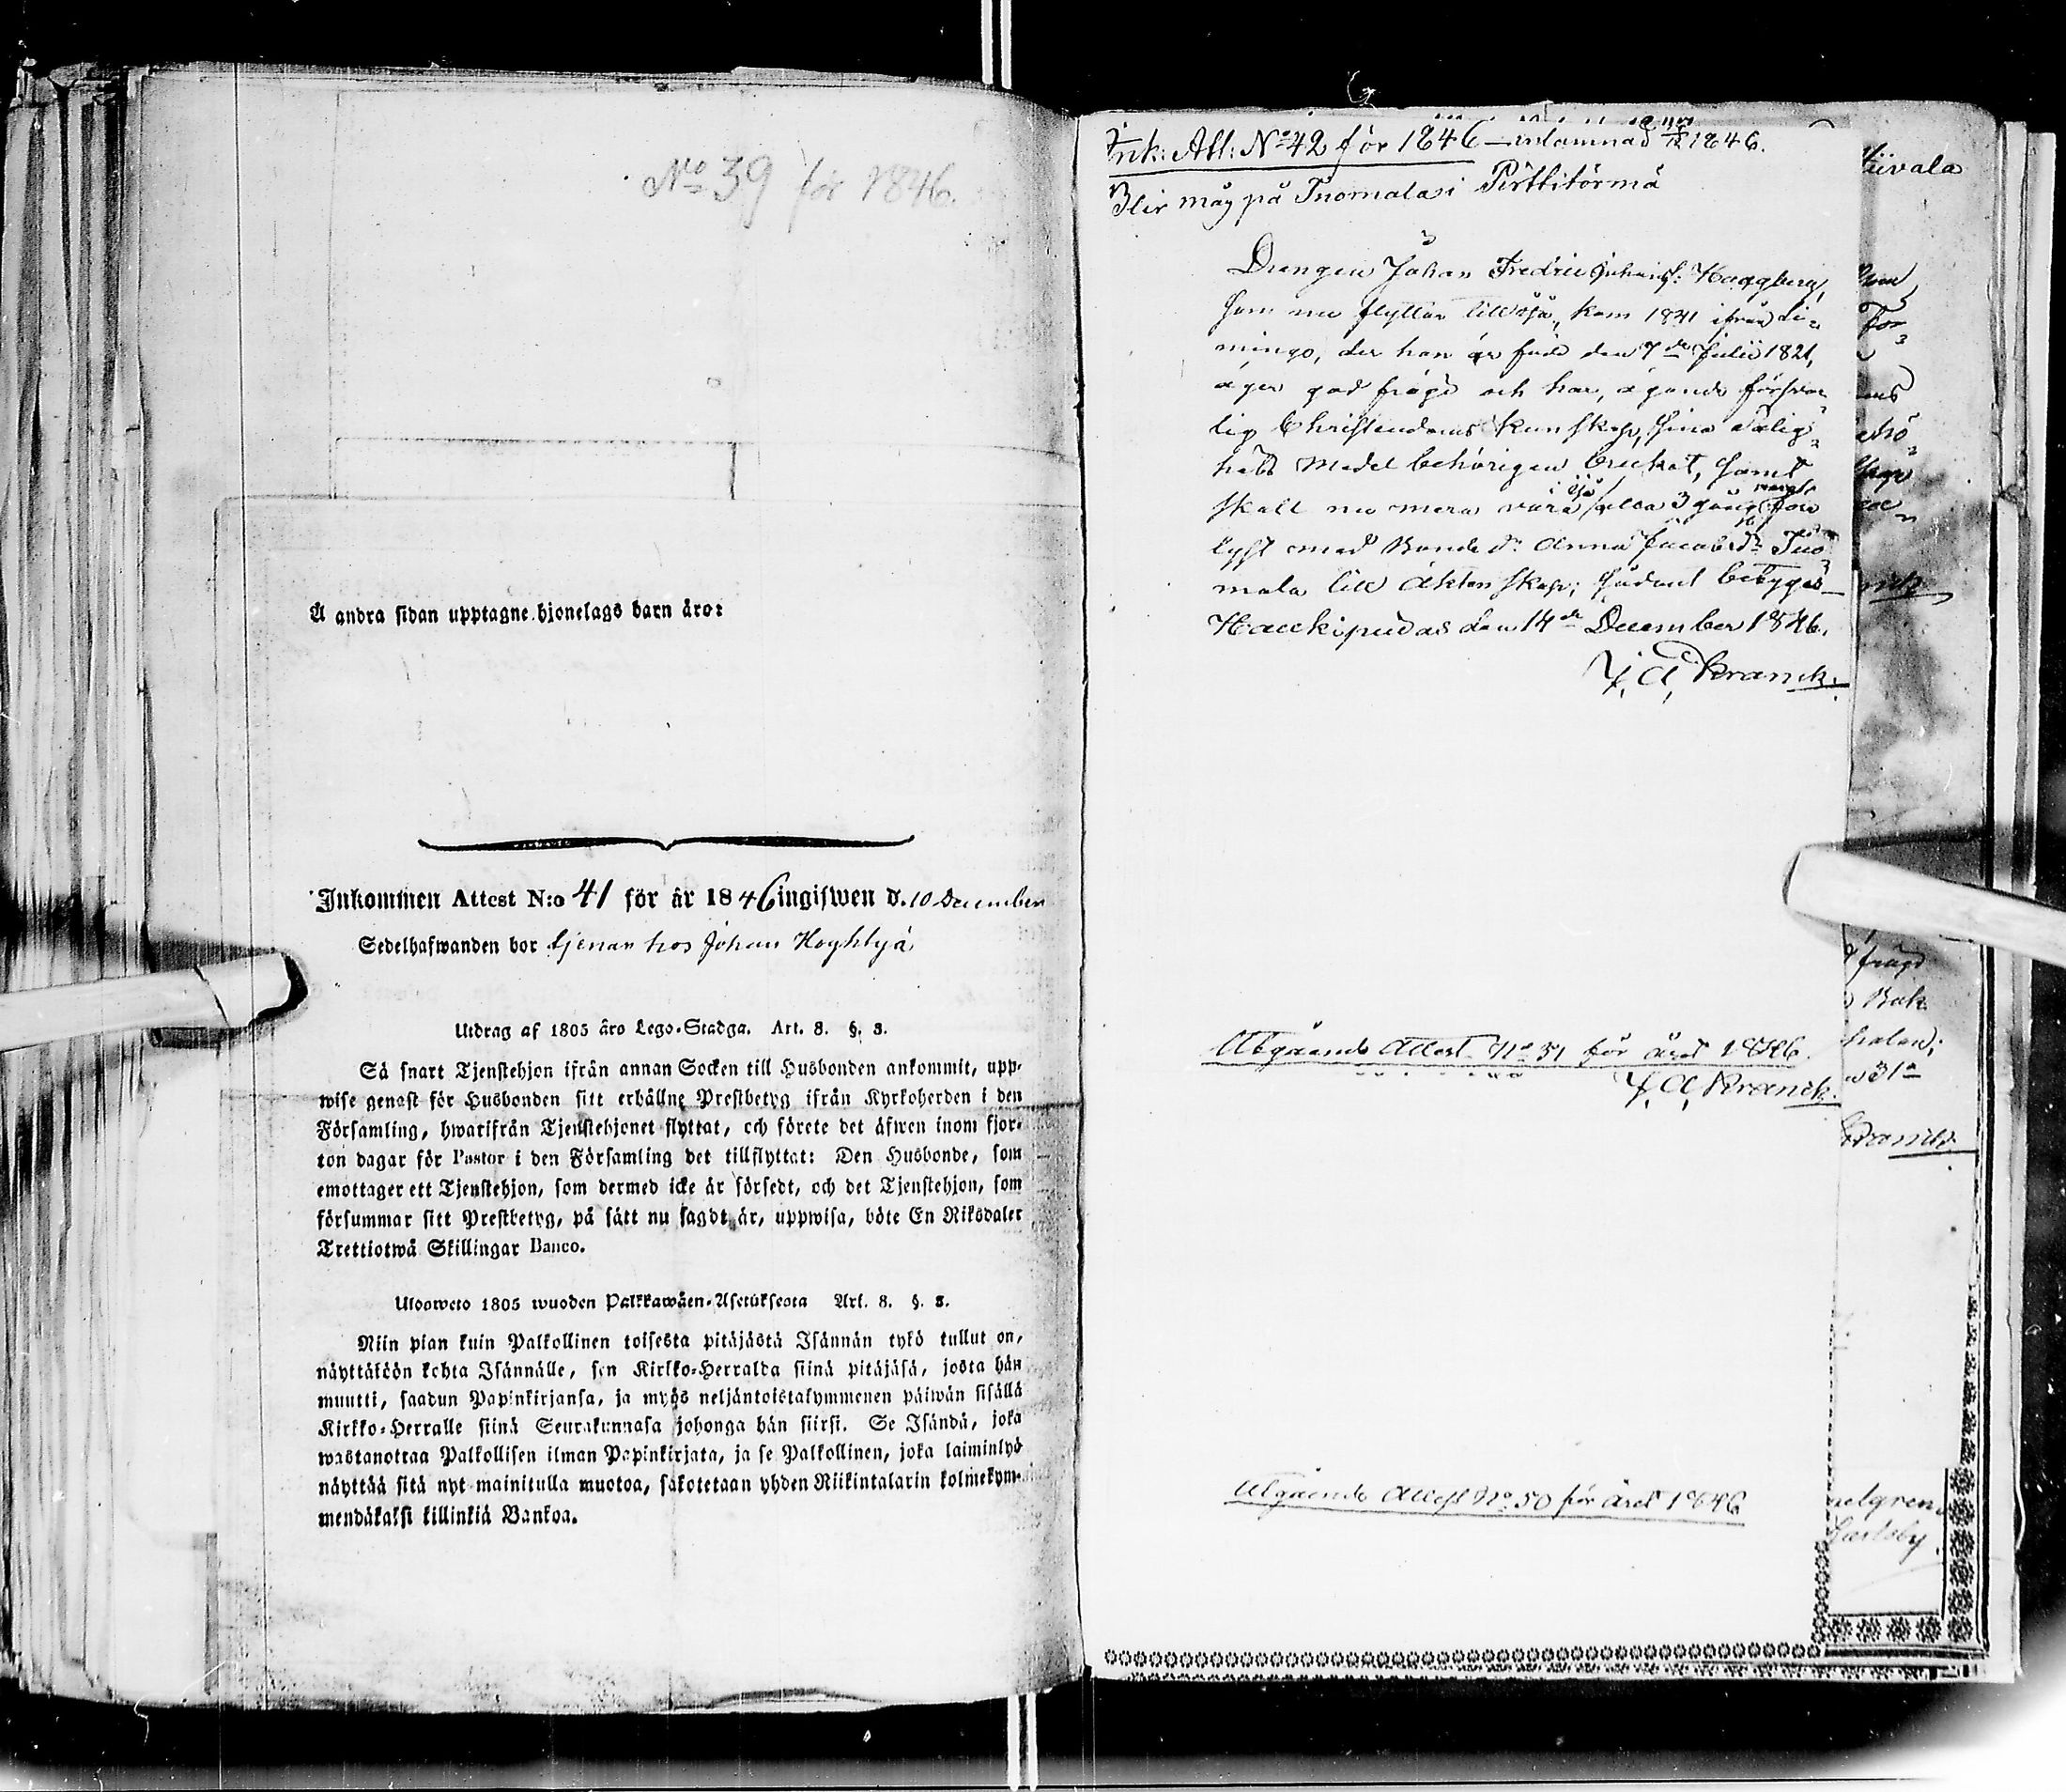 No 39 för 1846.
Å andra sidan upptagne hjonelags barn äro:
Inkommen Attest N:o 41 för år 1846 ingifwen d. 10 December
Sedelhafwanden bor tjenar hos Johan Höyhtyä
Utdrag af 1805 års Lego-Stadga. Art. 8. §. 3.
Så snart Tjenstehjon ifrån annan Socken till Husbonden ankommit, upp-
wise genast för Husbonden sitt erhållne Prestbetyg ifrån Kyrkoherden i den
Församling, hwarifrån Tjenstehjonet flyttat, och förete det äfwen inom fjor-
ton dagar för Pastor i den Församling det tillflyttat: Den Husbonde, som
emottager ett Tjenstehjon, som dermed icke är försedt, och det Tjenstehjon, som
försummar sitt Prestbetyg, på sätt nu sagdt är, uppwisa, böte En Riksdaler
Trettiotwå Skillingar Banco.
Ulosweto 1805 wuoden Palkkawäen-Asetuksesta Art. 8. §. 3.
Niin pian kuin Palkollinen toisesta pitäjästä Isännän tykö tullut on,
näyttäköön kohta Isännälle, sen Kirkko-Herralda siinä pitäjäsä, josta hän
muutti, saadun Papinkirjansa, ja myös neljäntoistakymmenen päiwän sisällä
Kirkko-Herralle siinä Seurakunnasa johonga hän siirsi. Se Isändä, joka
wastanottaa Palkollisen ilman Papinkirjata, ja se Palkollinen, joka laiminlyö
näyttää sitä nyt mainitulla muotoa, sakotetaan yhden Riikintalarin kolmekym-
mendäkaksi killinkiä Bankoa.
Ink: Att: No 42 för 1846 – inlämnad 1846.
Blir måg på Tuomala i Pirttitörmä
Drengen Johan Fredric Johanss: Haggberg,
som nu flyttar till Ijo, kom 1841 ifrån Li-
mingo, der han är född den 7de Julii 1821,
äger god frägd och har, ägande försvar-
lig Christendoms kunskap, sina salig-
hets medel behörigen brukat, samt
skall nu mera vara i Ijo alla 3 gång
lyst med Bonded. Anna Jacobsdr Tuo-
mala till äktenskap; sådant betygas
Haukipudas den 14de December 1846.
J. A. Kranck.
Utgående Attest No 51 för året 1846.
J. A. Kranck.
Utgående Attest No 50 för året 1846
frägd